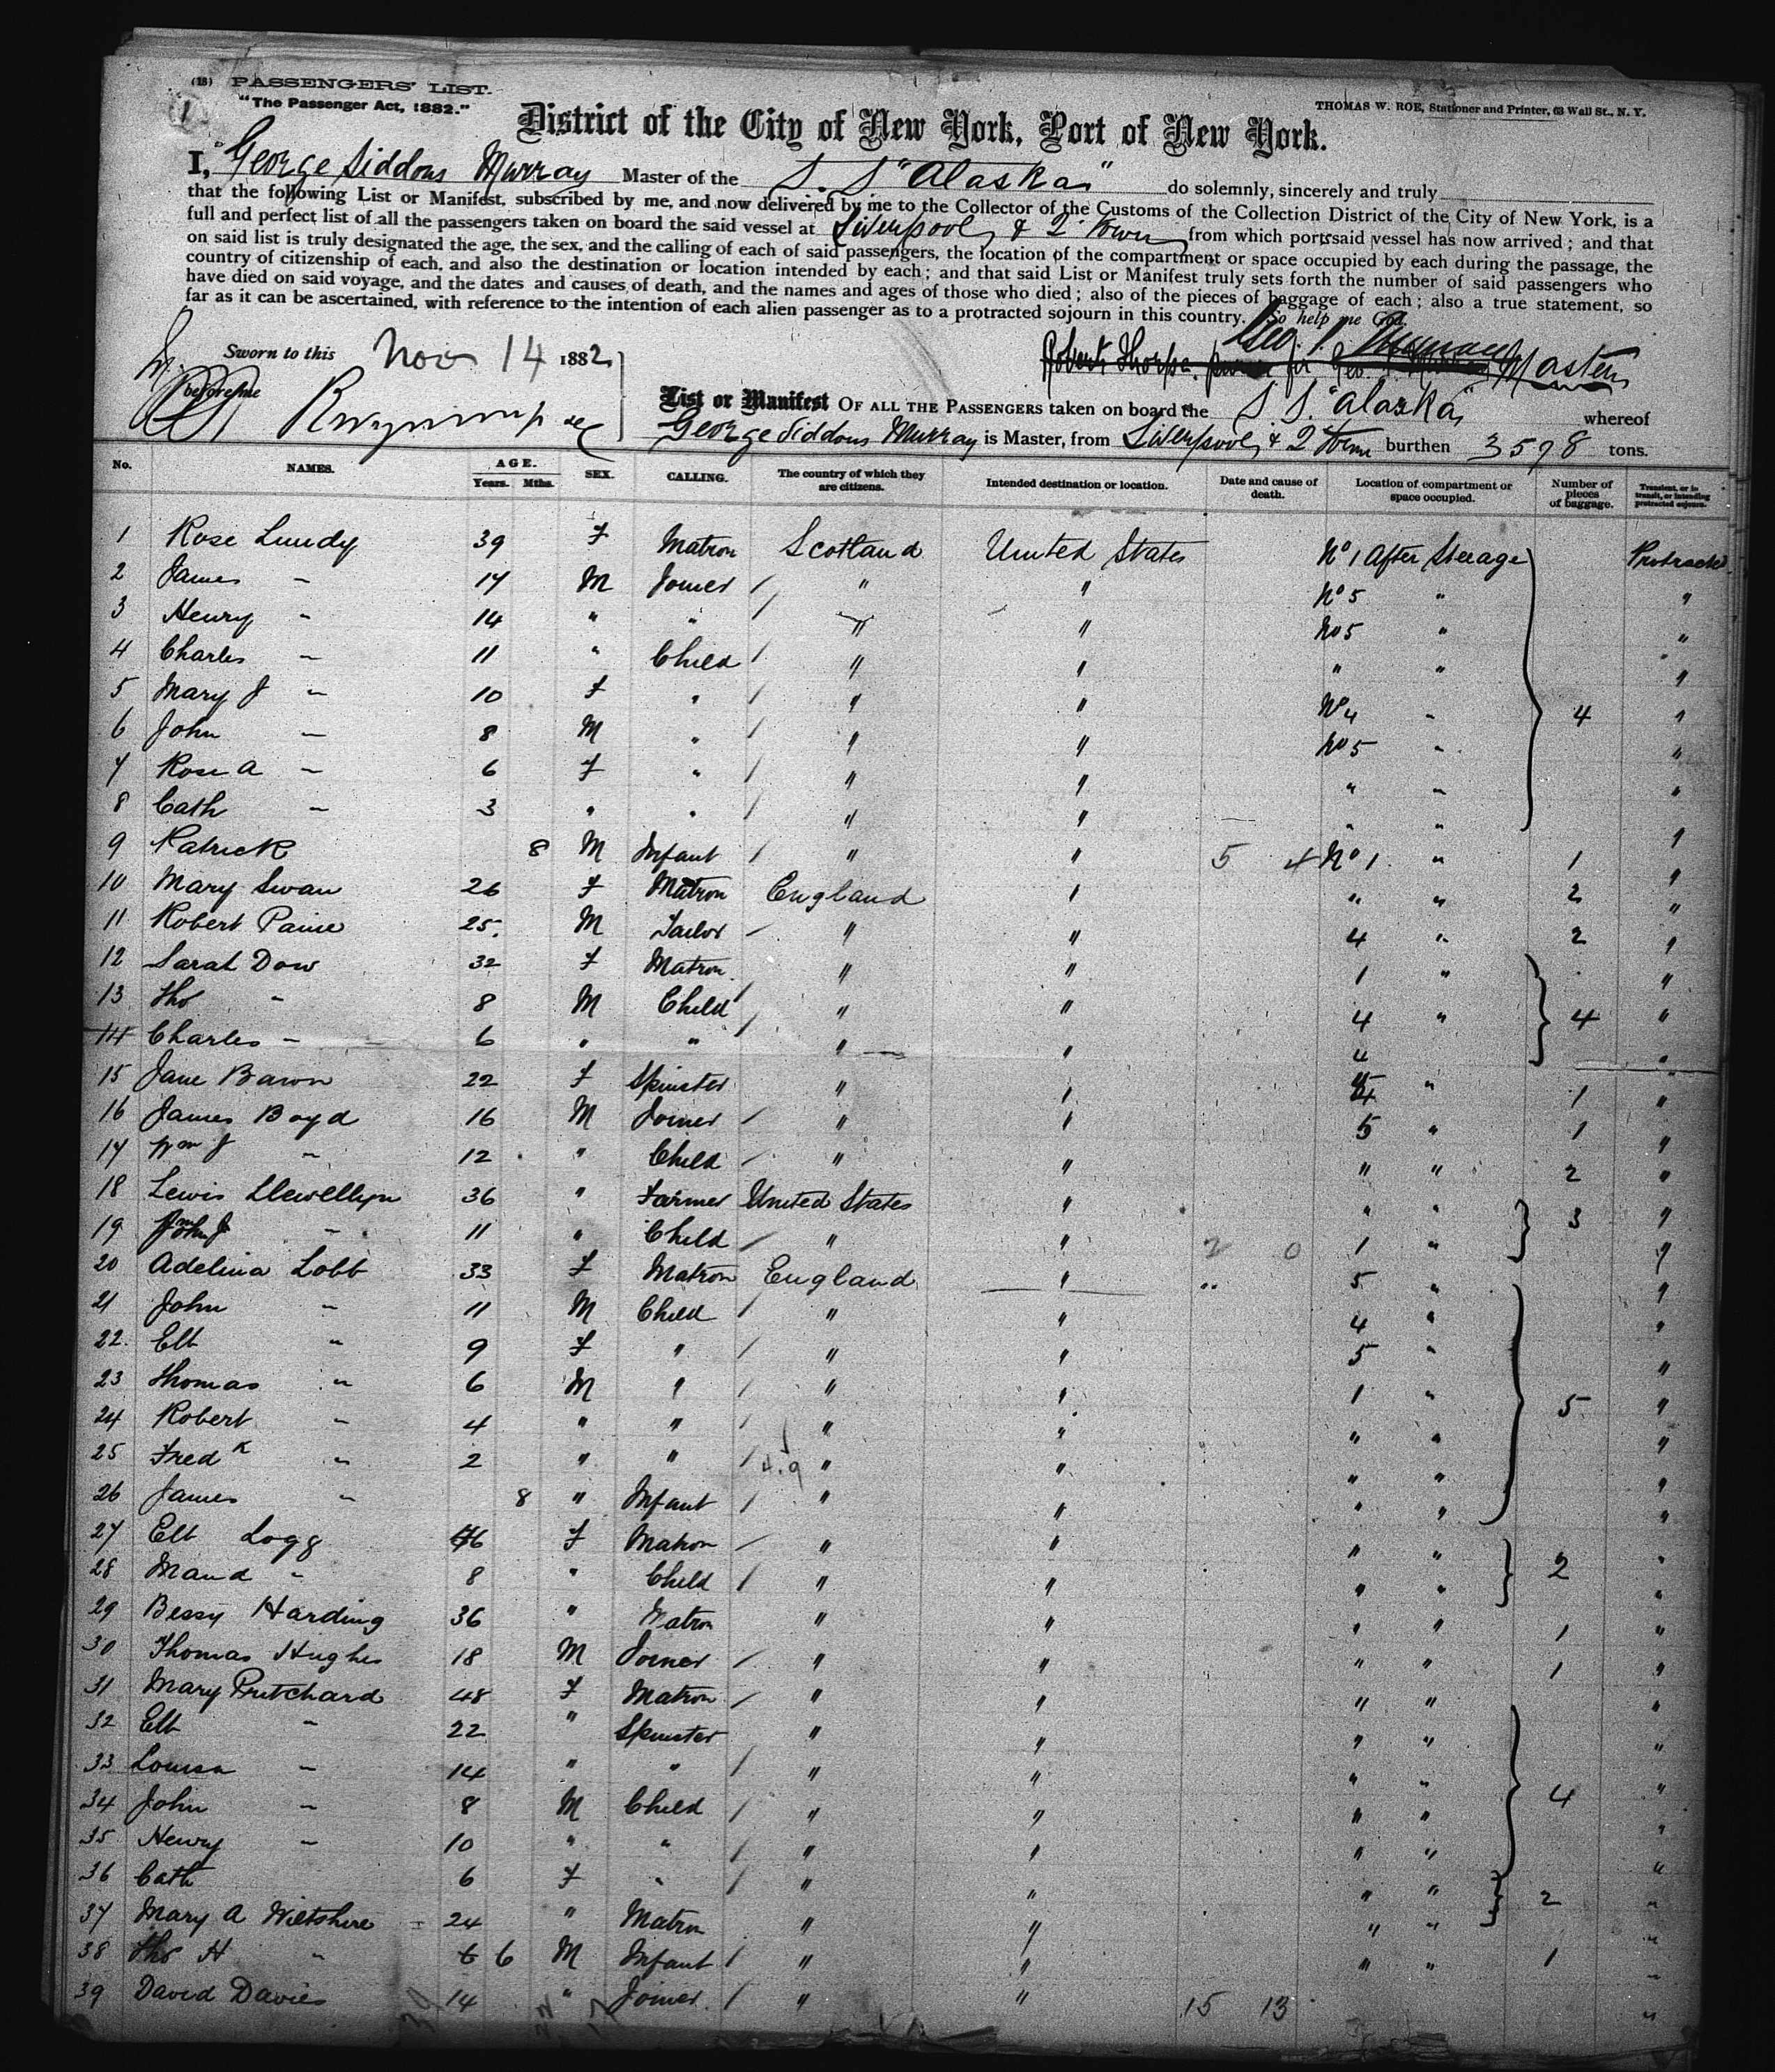 (18) PASSENGERS' LIST.
"The Passenger Act, 1882."
THOMAS W. ROE, Stationer and Printer, 63 Wall St., N. Y.
1
District of the City of New York, Port of New York.
I, George Siddons Murray Master of the S. S "Alaska" do solemnly, sincerely and truly
that the following List or Manifest, subscribed by me, and now delivered by me to the Collector of the Customs of the Collection District of the City of New York, is a
full and perfect list of all the passengers taken on board the said vessel at Liverpool & Q Town from which ports said vessel has now arrived; and that
on said list is truly designated the age, the sex, and the calling of each of said passengers, the location of the compartment or space occupied by each during the passage, the
country of citizenship of each, and also the destination or location intended by each; and that said List or Manifest truly sets forth the number of said passengers who
have died on said voyage, and the dates and causes of death, and the names and ages of those who died; also of the pieces of baggage of each; also a true statement, so
far as it can be ascertained, with reference to the intention of each alien passenger as to a protracted sojourn in this country. So help me God.
Sworn to this Nov 14 1882
before me
Master
List or Manifest OF ALL THE PASSENGERS taken on board the S S. "Alaska" whereof
George Siddons Murray is Master, from Liverpool & Q Town burthen 3578 tons.
No. NAMES. AGE. Years. Mths. SEX. CALLING. The country of which they are citizens. Intended destination or location. Date and cause of death. Location of compartment or space occupied. Number of pieces of baggage. Transient, or in transit, or intending protracted sojourn.
1 Rose Lundy 39 F Matron Scotland United States No 1 After Steerage Protracted
2 James " 17 M Joiner / " " No 5 " "
3 Henry " 14 " " / " " No 5 " "
4 Charles " 11 " Child / " " " " "
5 Mary J " 10 F " / " " No 4 " 4 "
6 John " 8 M " / " " No 5 " "
7 Rose A " 6 F " / " " " " "
8 Cath " 3 " " / " " " " "
9 Patrick 8 M Infant / " " 5 4 No 1 " 1 "
10 Mary Swan 26 F Matron England " " " 2 "
11 Robert Paine 25 M Tailor / " " 4 " 2 "
12 Sarah Dow 32 F Matron " " 1 " "
13 Tho " 8 M Child / " " 4 " 4 "
14 Charles " 6 " " / " " 4 "
15 Jane Baron 22 F Spinster " " 4 " 1 "
16 James Boyd 16 M Joiner / " " 5 " 1 "
17 Wm J " 12 " Child / " " " " 2 "
18 Lewis Llewellyn 36 " Farmer United States " " " 3 "
19 John J " 11 " Child / " " 2 0 1 " "
20 Adelina Lobb 33 F Matron England " 5 " "
21 John " 11 M Child / " " 4 " "
22 Elb " 9 F " / " " 5 " "
23 Thomas " 6 M " / " " 1 " 5 "
24 Robert " 4 " " / " " " " "
25 Fredk " 2 " " / 4.9 " " " " "
26 James " 8 " Infant / " " " " "
27 Elb Logg 46 F Matron / " " " " 2 "
28 Maud " 8 " Child / " " " " "
29 Bessy Harding 36 " Matron " " " " 1 "
30 Thomas Hughes 18 M Joiner / " " " " 1 "
31 Mary Pritchard 48 F Matron / " " " " "
32 Elb " 22 " Spinster " " " " "
33 Louisa " 14 " " / " " " " "
34 John " 8 M Child / " " " " 4 "
35 Henry " 10 " " / " " " " "
36 Cath 6 F " / " " " " "
37 Mary A Wiltshire 24 " Matron " " " " 2 "
38 Tho H " 6 M Infant / " " " " 1 "
39 David Davies 14 " Joiner / " " 15 13 "